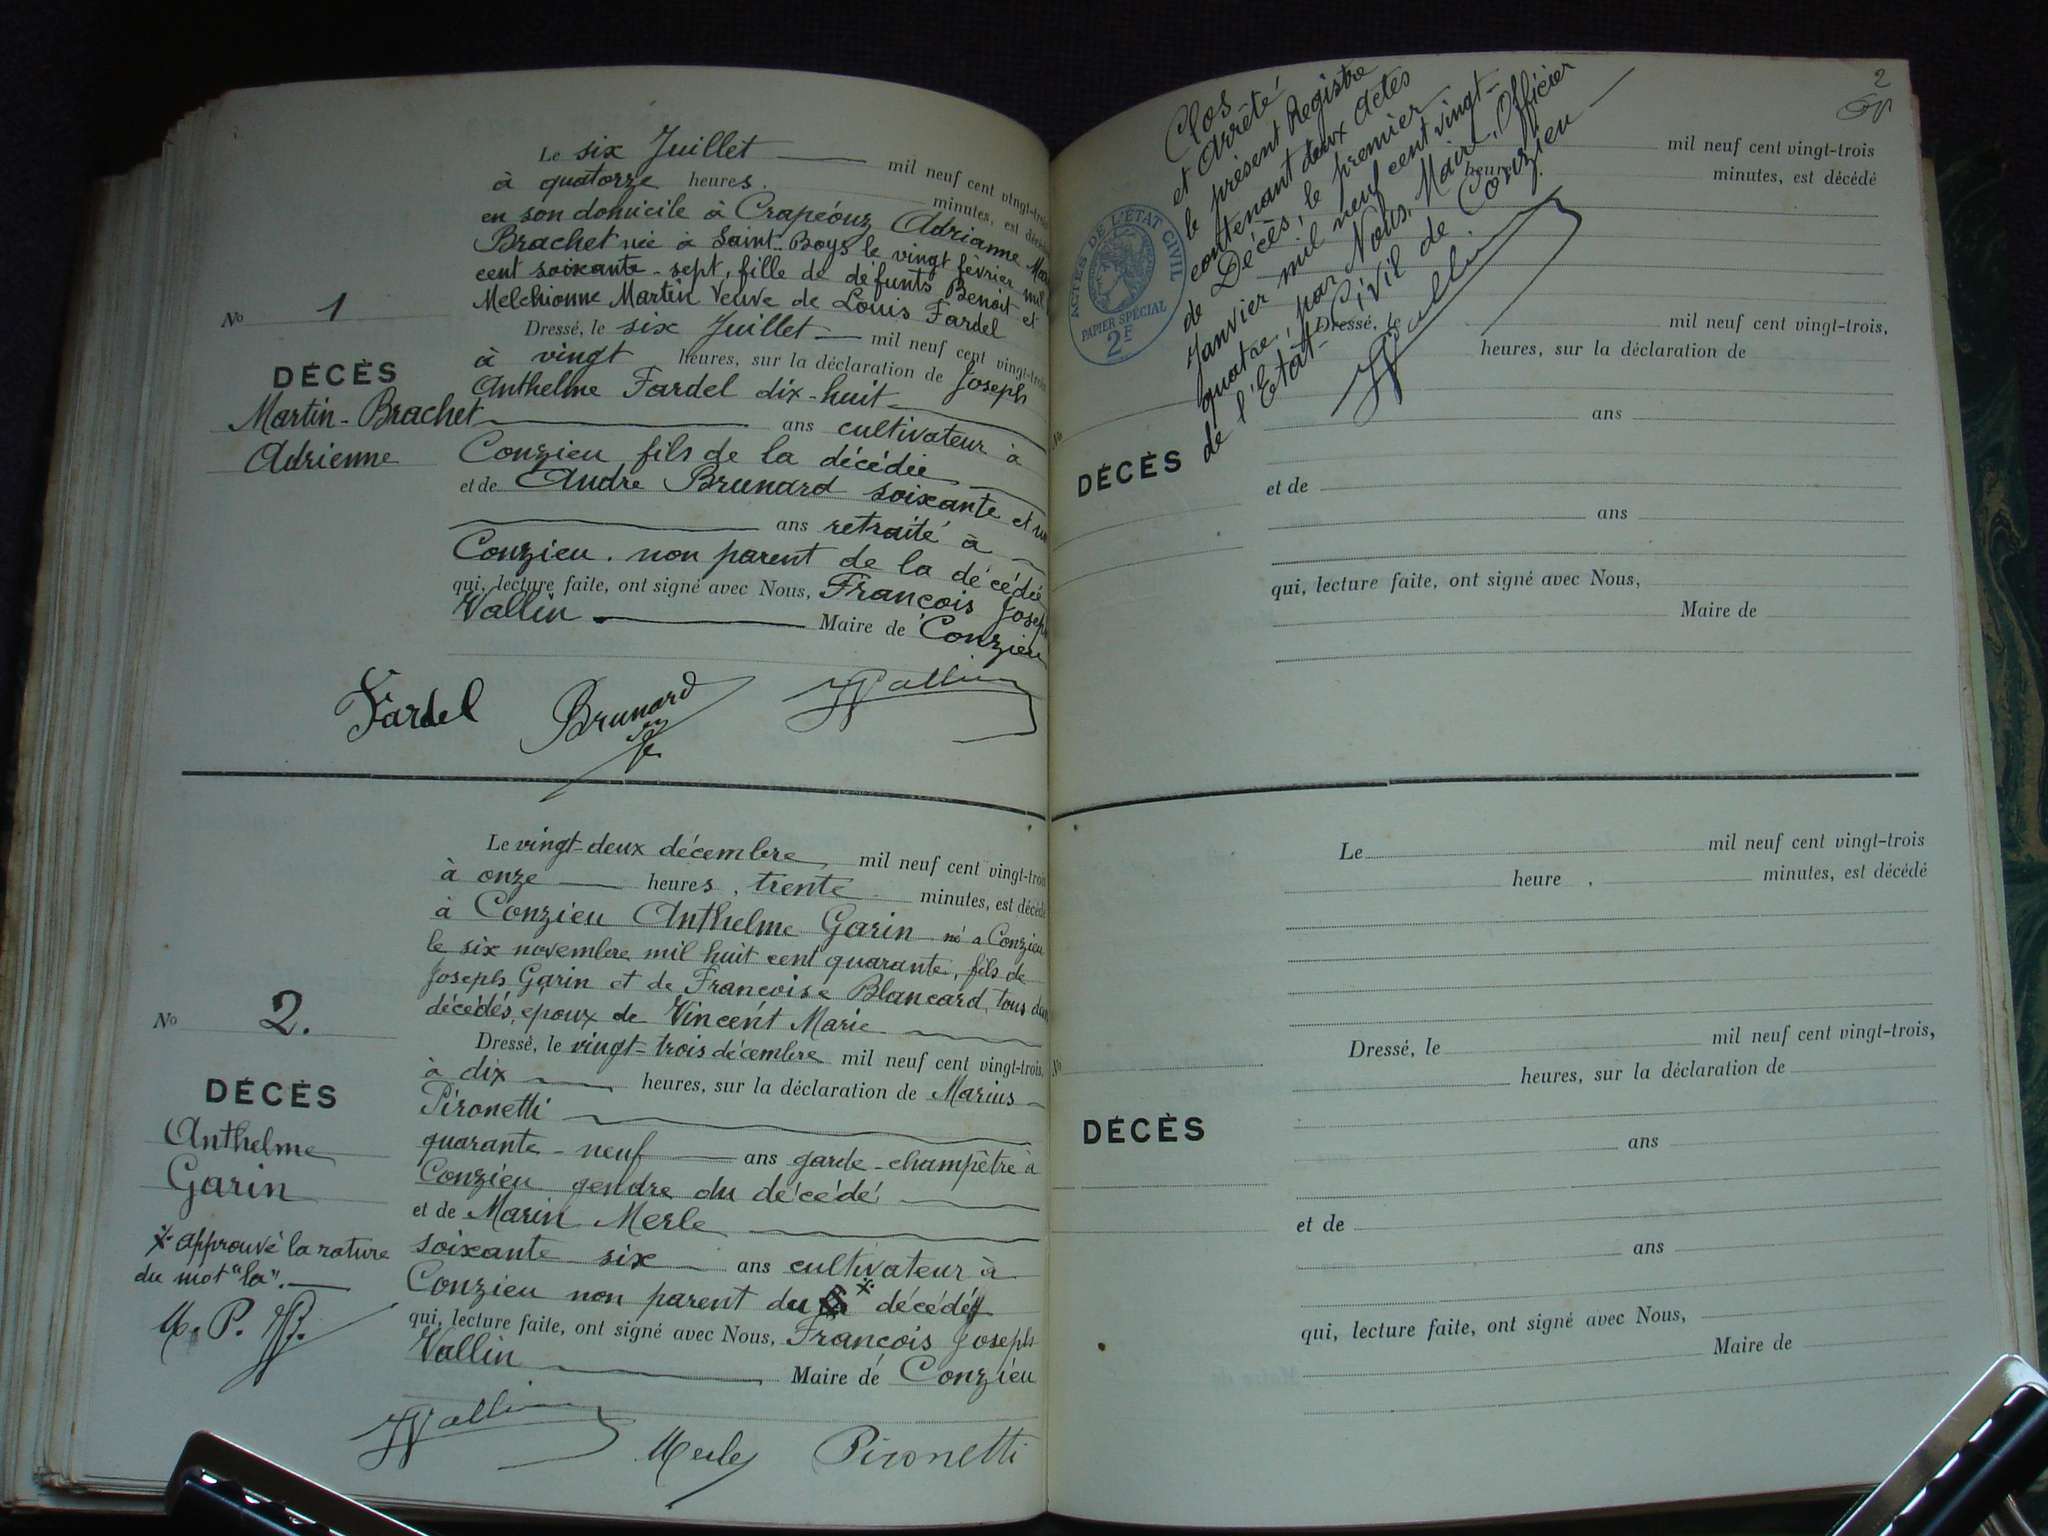 Le six Juillet mil neuf cent vingt-trois
à quatorze heures. minutes, est décédé
en son domicile à Crapéouz Adrianne
Brachet née à Saint-Boys le vingt février mil
cent soixante-sept, fille de défunts Benoit et
Melchionne Martin Veuve de Louis Fardel
No 1
Dressé, le six Juillet mil neuf cent vingt-trois
à vingt heures, sur la déclaration de Joseph
DÉCÈS
Anthelme Fardel dix-huit
Martin-Brachet
ans cultivateur à
Adrienne
Conzieu fils de la décédée
et de André Brunard soixante et un
ans retraité à
Conzieu. non parent de la décédée
qui, lecture faite, ont signé avec Nous, François Joseph
Vallin Maire de Conzieu
Fardel Brunard JVallin
Le vingt-deux décembre mil neuf cent vingt-trois
à onze heures, trente minutes, est décédé
à Conzieu Anthelme Garin né a Conzieu
le six novembre mil huit cent quarante, fils de
Joseph Garin et de Françoise Blancard, tous deux
No 2.
décédés, époux de Vincent Marie
Dressé, le vingt-trois décembre mil neuf cent vingt-trois,
à dix heures, sur la déclaration de Marius
DÉCÈS
Pironetti
Anthelme
quarante-neuf ans garde-champêtre à
Garin
Conzieu gendre du décédé
et de Marin Merle
x approuvé la rature
soixante six ans cultivateur à
du mot "la".
Conzieu non parent du la x décédé
M. P. JV.
qui, lecture faite, ont signé avec Nous, François Joseph
Vallin Maire de Conzieu
JVallin Merle Pironetti
2
Clos
et Arrêté
le présent Registre
contenant deux Actes
de Décès, le premier
Janvier mil neuf cent vingt-
quatre, par Nous, Maire, Officier
de l'Etat-Civil de Conzieu.
JVallin
ACTES DE L'ÉTAT CIVIL
PAPIER SPÉCIAL
2F
mil neuf cent vingt-trois
heure minutes, est décédé
Dressé, le mil neuf cent vingt-trois,
heures, sur la déclaration de
No
ans
DÉCÈS
et de
ans
qui, lecture faite, ont signé avec Nous,
Maire de
Le mil neuf cent vingt-trois
heure , minutes, est décédé
Dressé, le mil neuf cent vingt-trois,
No
heures, sur la déclaration de
DÉCÈS
ans
et de
ans
qui, lecture faite, ont signé avec Nous,
Maire de